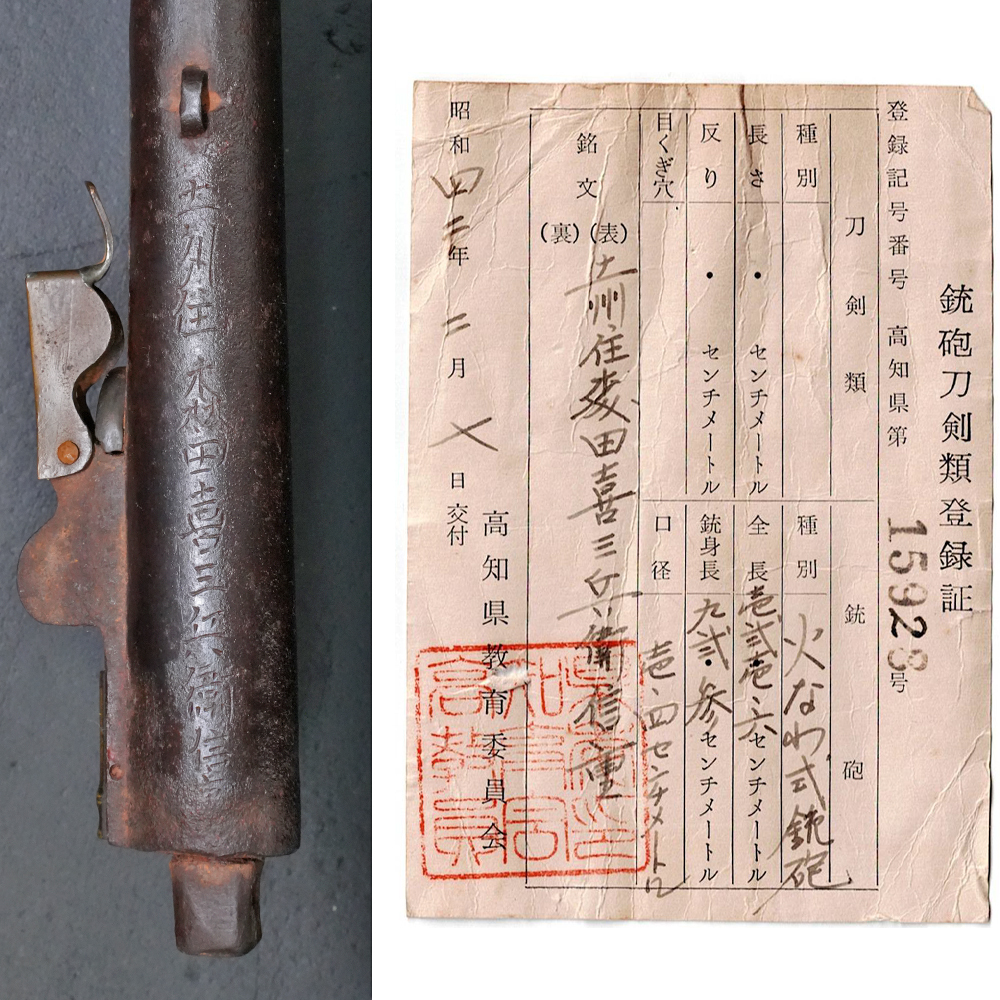 土州住
田喜三兵衛信
銃砲刀剣類登録証
登録記号番号 高知県第 15928号
刀剣類
種別
長さ ・ センチメートル
反り ・ センチメートル
目くぎ穴
銘文 (表) (裏)
土州住 田喜三兵衛信重
銃砲
種別 火なわ式銃砲
全長 壱弐壱・六センチメートル
銃身長 九弐・参センチメートル
口径 壱・四センチメートル
高知県教育委員会
昭和四二年二月七日交付